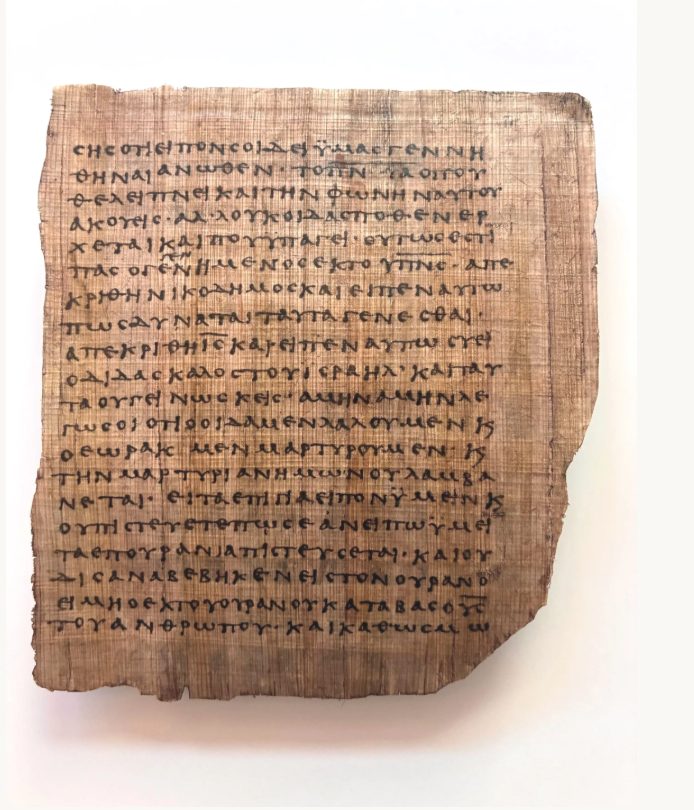 ϹΗϹΟΤΙΕΙΠΟΝϹΟΙΔΕΙΫΜΑϹΓΕΝΝΗ
ΘΗΝΑΙΑΝΩΘΕΝ· ΤΟΠΝ̅
ΘΕΛΕΙΠΝΕΙΚΑΙΤΗΝΦΩΝΗΝΑΥΤΟΥ
ΑΚΟΥΕΙϹ·ΑΛ·ΛΟΥΚΟΙΔΑϹΠΟΘΕΝΕΡ
ΧΕΤΑΙΚΑΙΠΟΥΥΠΑΓΕΙ·ΟΥΤΩϹΕϹΤΙ
ΠΑϹΟΓΕΝΗΜΕΝΟϹΕΚΤΟΥΠ̅Ν̅Ϲ̅·ΑΠΕ
ΚΡΙΘΗΝΙΚΟΔΗΜΟϹΚΑΙΕΙΠΕΝΑΥΤΩ
ΠΩϹΔΥΝΑΤΑΙΤΑΥΤΑΓΕΝΕϹΘΑΙ·
ΑΠΕΚΡΙΘΗΙ̅Ϲ̅ΚΑΙΕΙΠΕΝΑΥΤΩϹΥΕΙ
ΟΔΙΔΑϹΚΑΛΟϹΤΟΥΙϹΡΑΗΛ·ΚΑΙΤΑΥ
ΤΑΟΥΓΕΙΝΩϹΚΕΙϹ·ΑΜΗΝΑΜΗΝΛΕ
ΓΩϹΟΙΟΤΙΟΟΙΔΑΜΕΝΛΑΛΟΥΜΕΝϗ
ΟΕΩΡΑΚ ΜΕΝΜΑΡΤΥΡΟΥΜΕΝ·ϗ
ΤΗΝΜΑΡΤΥΡΙΑΝΗΜΩΝΟΥΛΑΜΒΑ
ΝΕΤΑΙ· ΕΙΤΑΕΠΙΓΙΑΕΙΠΟΝΫΜΕΙΝϗ
ΟΥΠΙϹΤΕΥΕΤΕΠΩϹΕΑΝΕΙΠΩΫΜΕΙ
ΤΑΕΠΟΥΡΑΝΙΑΠΙϹΤΕΥϹΕΤΑΙ·ΚΑΙΟΥ
ΔΙϹΑΝΑΒΕΒΗΚΕΝΕΙϹΤΟΝΟΥΡΑΝΟ
ΕΙΜΗΟΕΚΤΟΥΟΥΡΑΝΟΥΚΑΤΑΒΑϹΟΥ̅Ϲ̅
ΤΟΥΑΝΘΡΩΠΟΥ·ΚΑΙΚΑΘΩϹΜΩ